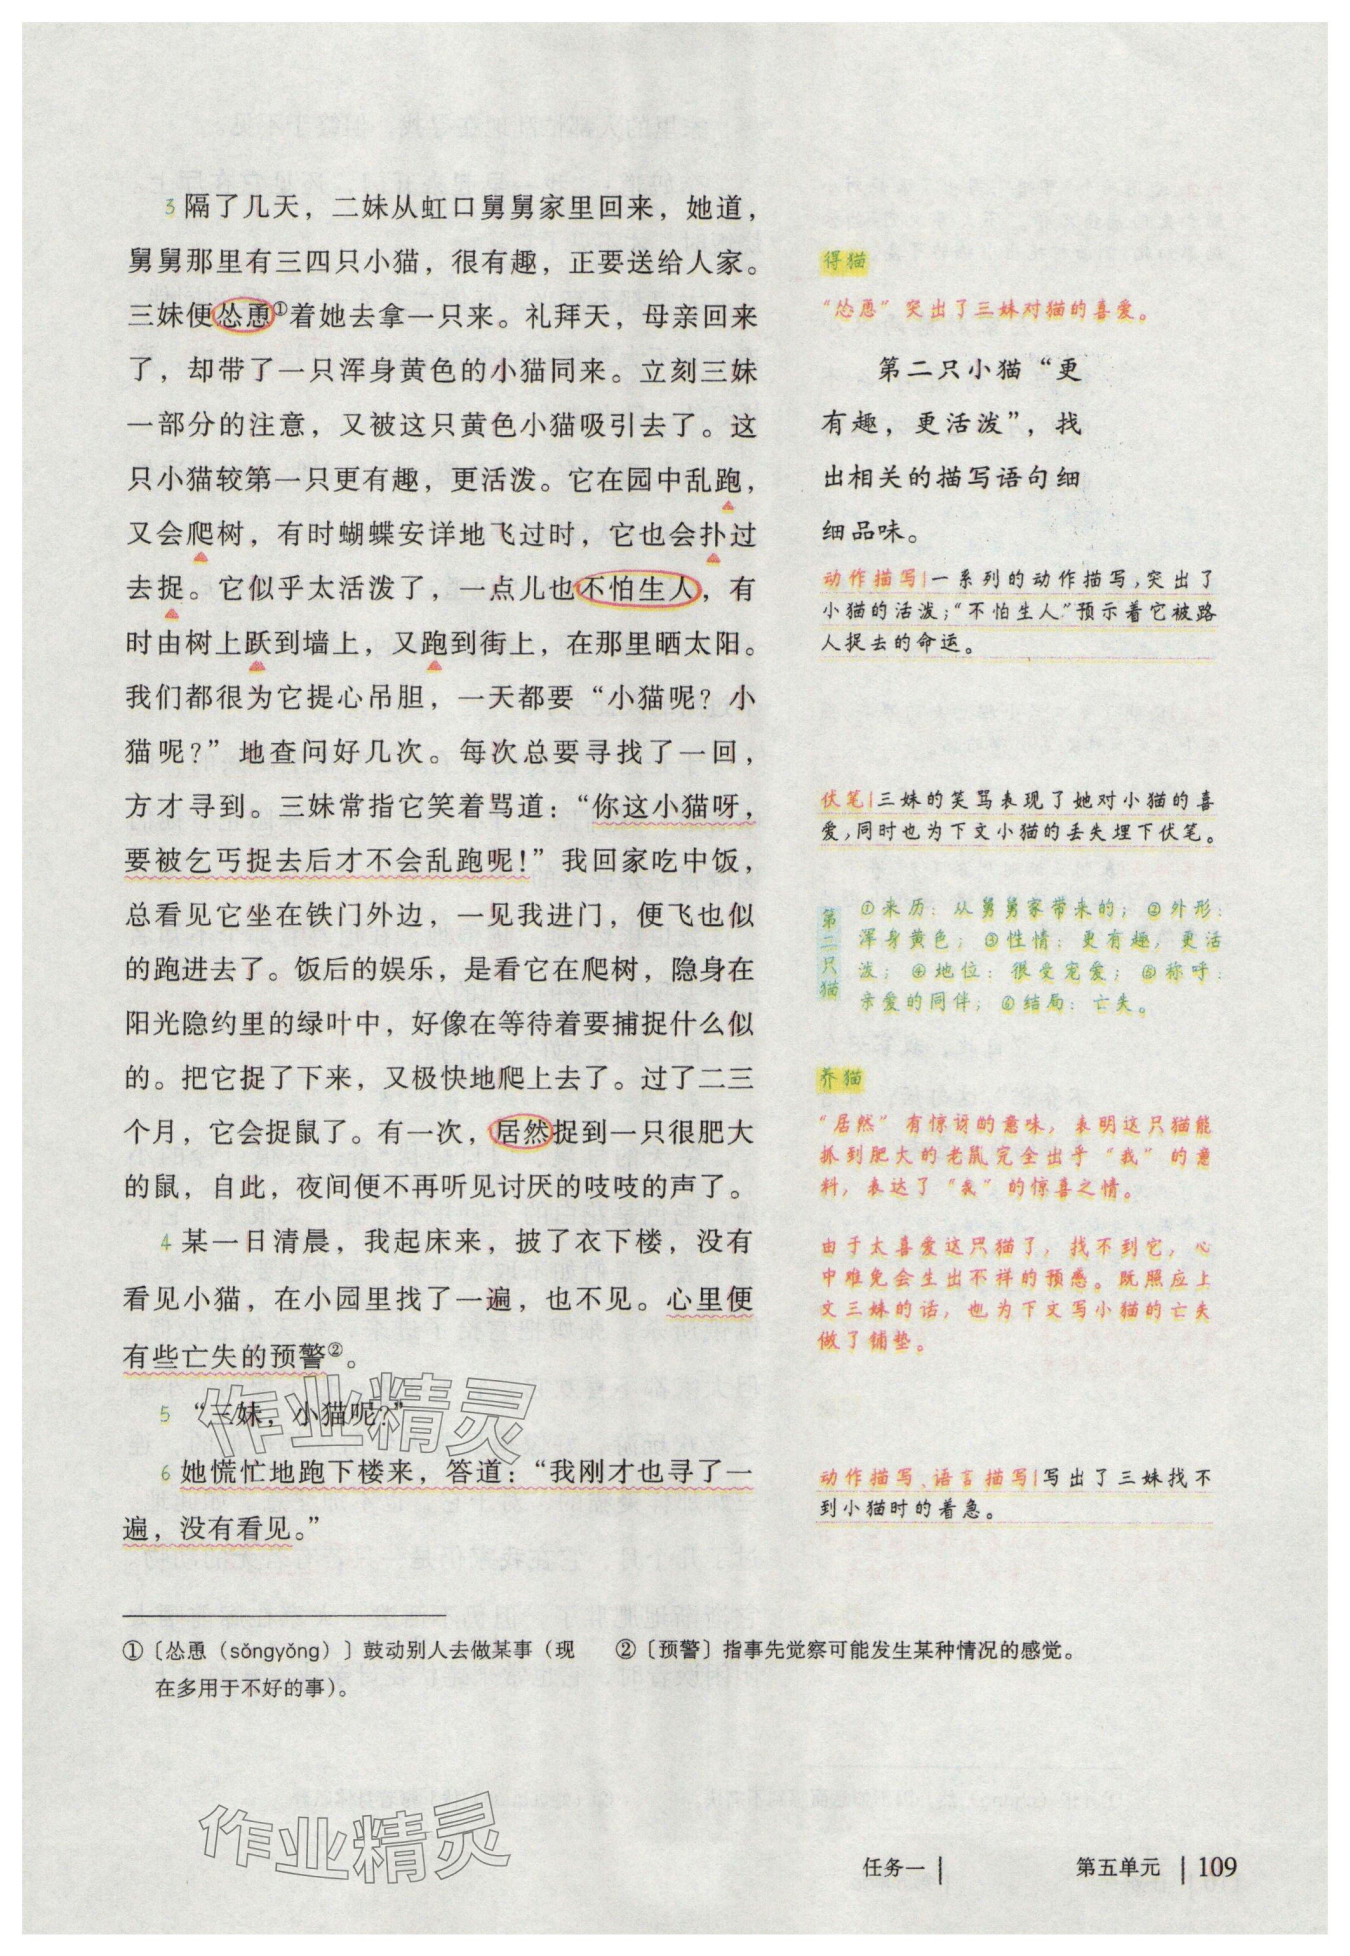 3 隔了几天，二妹从虹口舅舅家里回来，她道，
舅舅那里有三四只小猫，很有趣，正要送给人家。
三妹便怂恿①着她去拿一只来。礼拜天，母亲回来
了，却带了一只浑身黄色的小猫同来。立刻三妹
一部分的注意，又被这只黄色小猫吸引去了。这
只小猫较第一只更有趣，更活泼。它在园中乱跑，
又会爬树，有时蝴蝶安详地飞过时，它也会扑过
去捉。它似乎太活泼了，一点儿也不怕生人，有
时由树上跃到墙上，又跑到街上，在那里晒太阳。
我们都很为它提心吊胆，一天都要“小猫呢？小
猫呢？”地查问好几次。每次总要寻找了一回，
方才寻到。三妹常指它笑着骂道：“你这小猫呀，
要被乞丐捉去后才不会乱跑呢！”我回家吃中饭，
总看见它坐在铁门外边，一见我进门，便飞也似
的跑进去了。饭后的娱乐，是看它在爬树，隐身在
阳光隐约里的绿叶中，好像在等待着要捕捉什么似
的。把它捉了下来，又极快地爬上去了。过了二三
个月，它会捉鼠了。有一次，居然捉到一只很肥大
的鼠，自此，夜间便不再听见讨厌的吱吱的声了。
4 某一日清晨，我起床来，披了衣下楼，没有
看见小猫，在小园里找了一遍，也不见。心里便
有些亡失的预警②。
5 “三妹，小猫呢？”
6 她慌忙地跑下楼来，答道：“我刚才也寻了一
遍，没有看见。”
得猫
“怂恿”突出了三妹对猫的喜爱。
第二只小猫“更
有趣，更活泼”，找
出相关的描写语句细
细品味。
动作描写|一系列的动作描写，突出了
小猫的活泼；“不怕生人”预示着它被路
人捉去的命运。
伏笔|三妹的笑骂表现了她对小猫的喜
爱，同时也为下文小猫的丢失埋下伏笔。
第二只猫
①来历：从舅舅家带来的；②外形：
浑身黄色；③性情：更有趣，更活
泼；④地位：很受宠爱；⑤称呼：
亲爱的同伴；⑥结局：亡失。
养猫
“居然”有惊讶的意味，表明这只猫能
抓到肥大的老鼠完全出乎“我”的意
料，表达了“我”的惊喜之情。
由于太喜爱这只猫了，找不到它，心
中难免会生出不祥的预感。既照应上
文三妹的话，也为下文写小猫的亡失
做了铺垫。
动作描写、语言描写|写出了三妹找不
到小猫时的着急。
①〔怂恿（sǒngyǒng）〕鼓动别人去做某事（现
在多用于不好的事）。
②〔预警〕指事先觉察可能发生某种情况的感觉。
作业精灵
作业精灵
任务一 | 第五单元 | 109